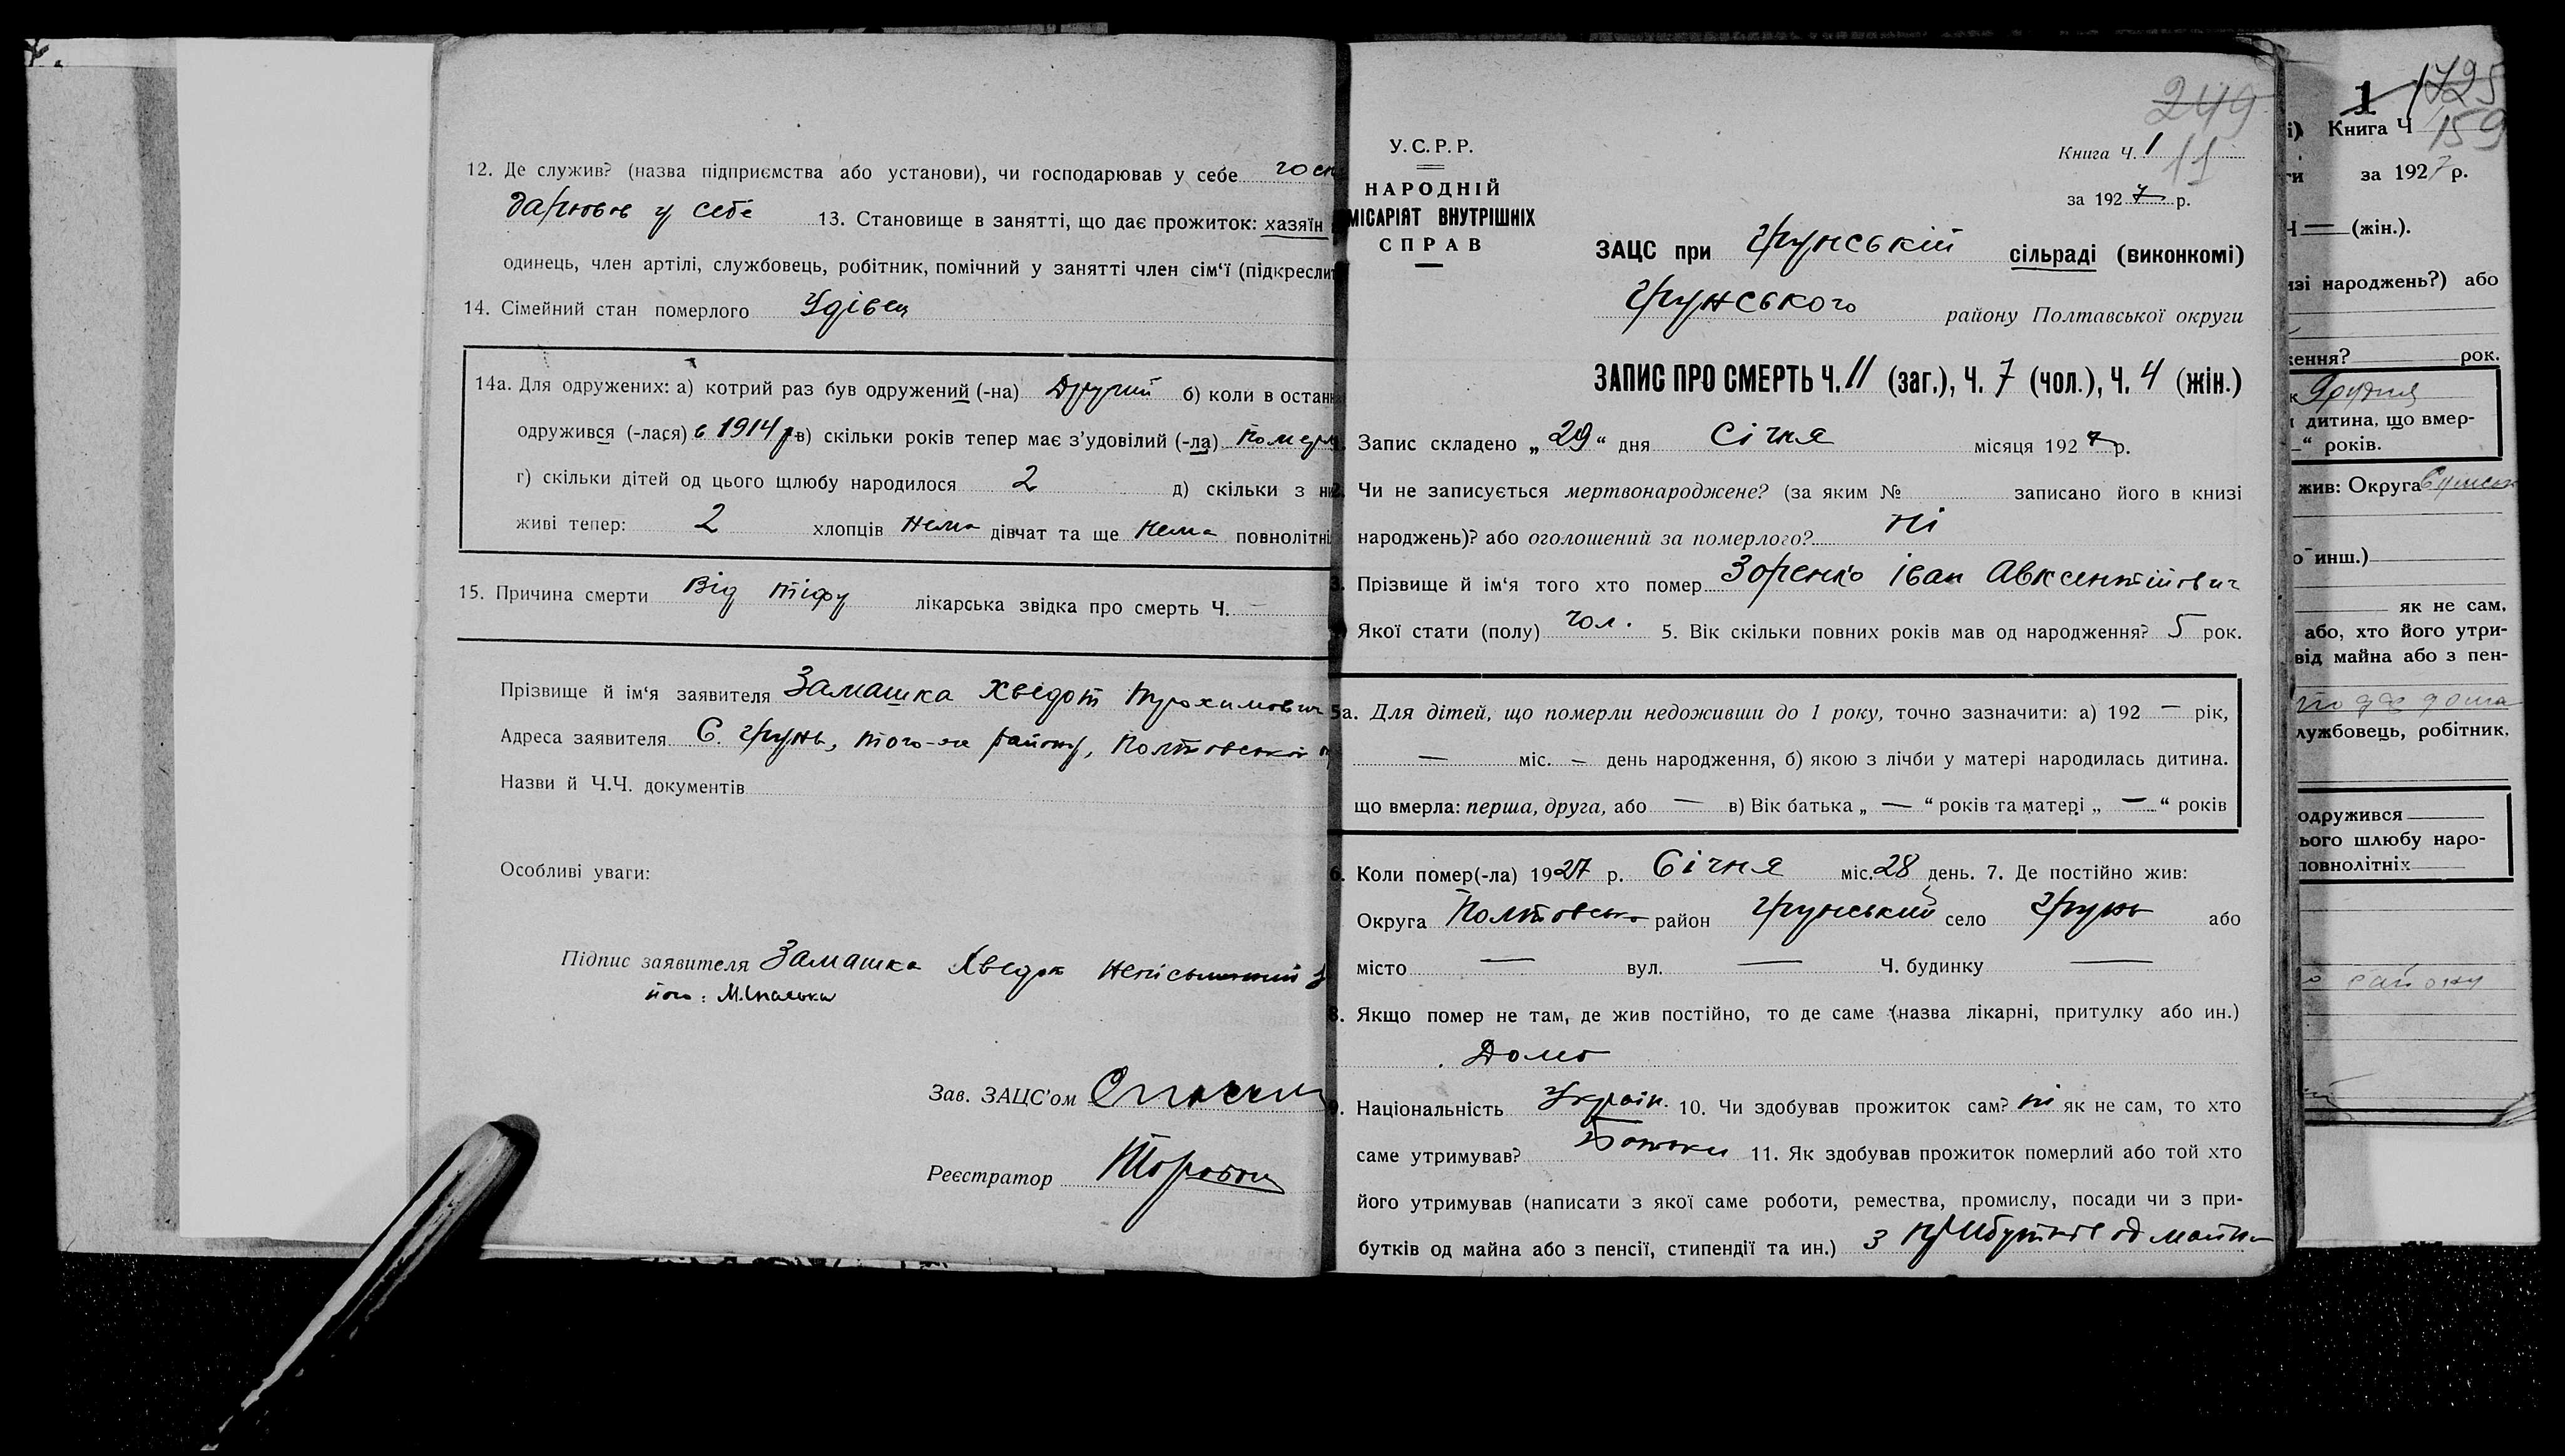 12. Де служив? (назва підприємства або установи), чи господарював у себе госп
дарював у себе 13. Становище в занятті, що дає прожиток: хазяїн
одинець, член артілі, службовець, робітник, помічний у занятті член сім‘ї (підкреслит
14. Сімейний стан померлого Удівец
14а. Для одружених: а) котрий раз був одружений (-на) Другий б) коли в остан
одружився (-лася) в 1914 р. в) скільки років тепер має з’удовілий (-ла) померл
г) скільки дітей од цього щлюбу народилося 2 д) скільки з ни
живі тепер: 2 хлопців нема дівчат та ще нема повнолітні
15. Причина смерти Від тіфу лікарська звідка про смерть Ч. —
Прізвище й ім‘я заявителя Замашка Хведот Трохимович
Адреса заявителя С. Грунь, того-ж району, Полтавської
Назви й Ч.Ч. документів
Особливі уваги:
Підпис заявителя Замашка Хведот неписьменний
його:
Зав. ЗАЦС’ом
Реєстратор
249
У.С.Р.Р.
НАРОДНІЙ
МІСАРІЯТ ВНУТРІШНІХ
СПРАВ
Книга Ч. 1 11
за 1927 р.
ЗАЦС при Грунській сільраді (виконкомі)
Грунського району Полтавської округи
ЗАПИС ПРО СМЕРТЬ Ч. 11 (заг.), Ч. 7 (чол.), Ч. 4 (жін.)
Запис складено „29“ дня Січня місяця 1927 р.
2. Чи не записується мертвонароджене? (за яким № записано його в книзі
народжень)? або оголошений за померлого? Ні
3. Прізвище й ім‘я того хто помер Зоренко Іван Авксентійович
Якої стати (полу) чол. 5. Вік скільки повних років мав од народження? 5 рок.
5а. Для дітей, що померли недоживши до 1 року, точно зазначити: а) 192 — рік,
— міс. — день народження, б) якою з лічби у матері народилась дитина.
що вмерла: перша, друга, або — в) Вік батька „ — “ років та матері „ — “ років
6. Коли помер(-ла) 1927 р. Січня міс. 28 день. 7. Де постійно жив:
Округа Полтавська район Грунський село Грунь або
місто — вул. — Ч. будинку —
8. Якщо помер не там, де жив постійно, то де саме (назва лікарні, притулку або ин.)
Дома
9. Національність Україн. 10. Чи здобував прожиток сам? ні як не сам, то хто
саме утримував? Батьки 11. Як здобував прожиток померлий або той хто
його утримував (написати з якої саме роботи, ремества, промислу, посади чи з при-
бутків од майна або з пенсії, стипендії та ин.) З прибутків од майна
1 1725
і) Книга Ч 159
ти за 1927 р.
Ч — (жін.).
изі народжень?) або
ження? рок.
к Грудня
дитина, що вмер-
“ років.
жив: Округа Сумськ
о инш.)
як не сам,
або, хто його утри-
від майна або з пен-
лужбовець, робітник.
одружився
ього шлюбу наро-
повнолітніх
району